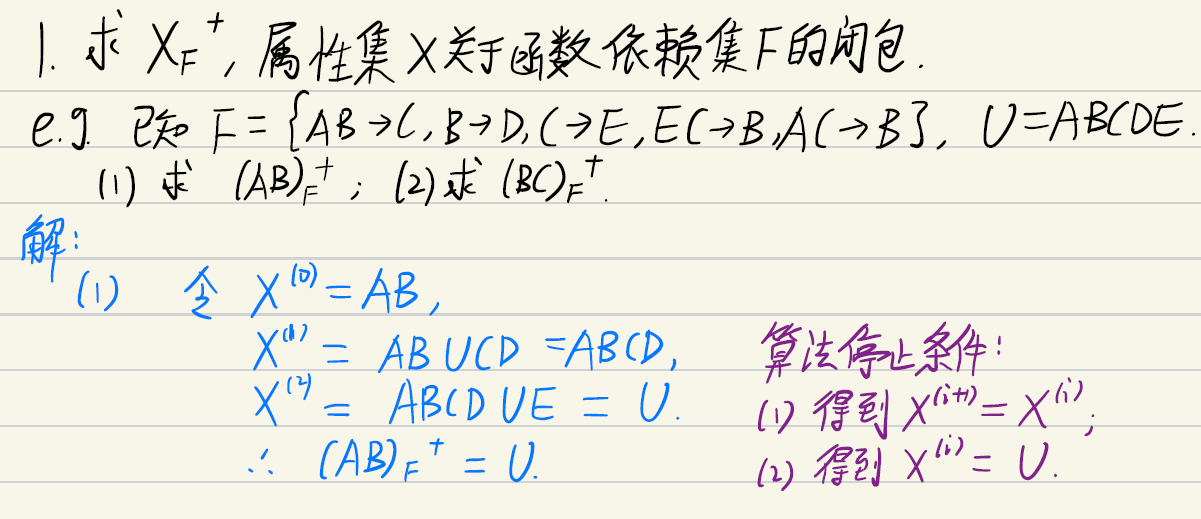 1. 求 X_F^+, 属性集 X 关于函数依赖集F的闭包.
e.g. 已知 F = {AB→C, B→D, C→E, EC→B, AC→B}, U=ABCDE.
(1) 求 (AB)_F^+ ; (2) 求 (BC)_F^+.
解:
(1) 令 X^(0) = AB,
X^(1) = AB∪CD =ABCD,
X^(2) = ABCD∪E = U.
∴ (AB)_F^+ = U.
算法停止条件:
(1) 得到 X^(i+1) = X^(i);
(2) 得到 X^(i) = U.